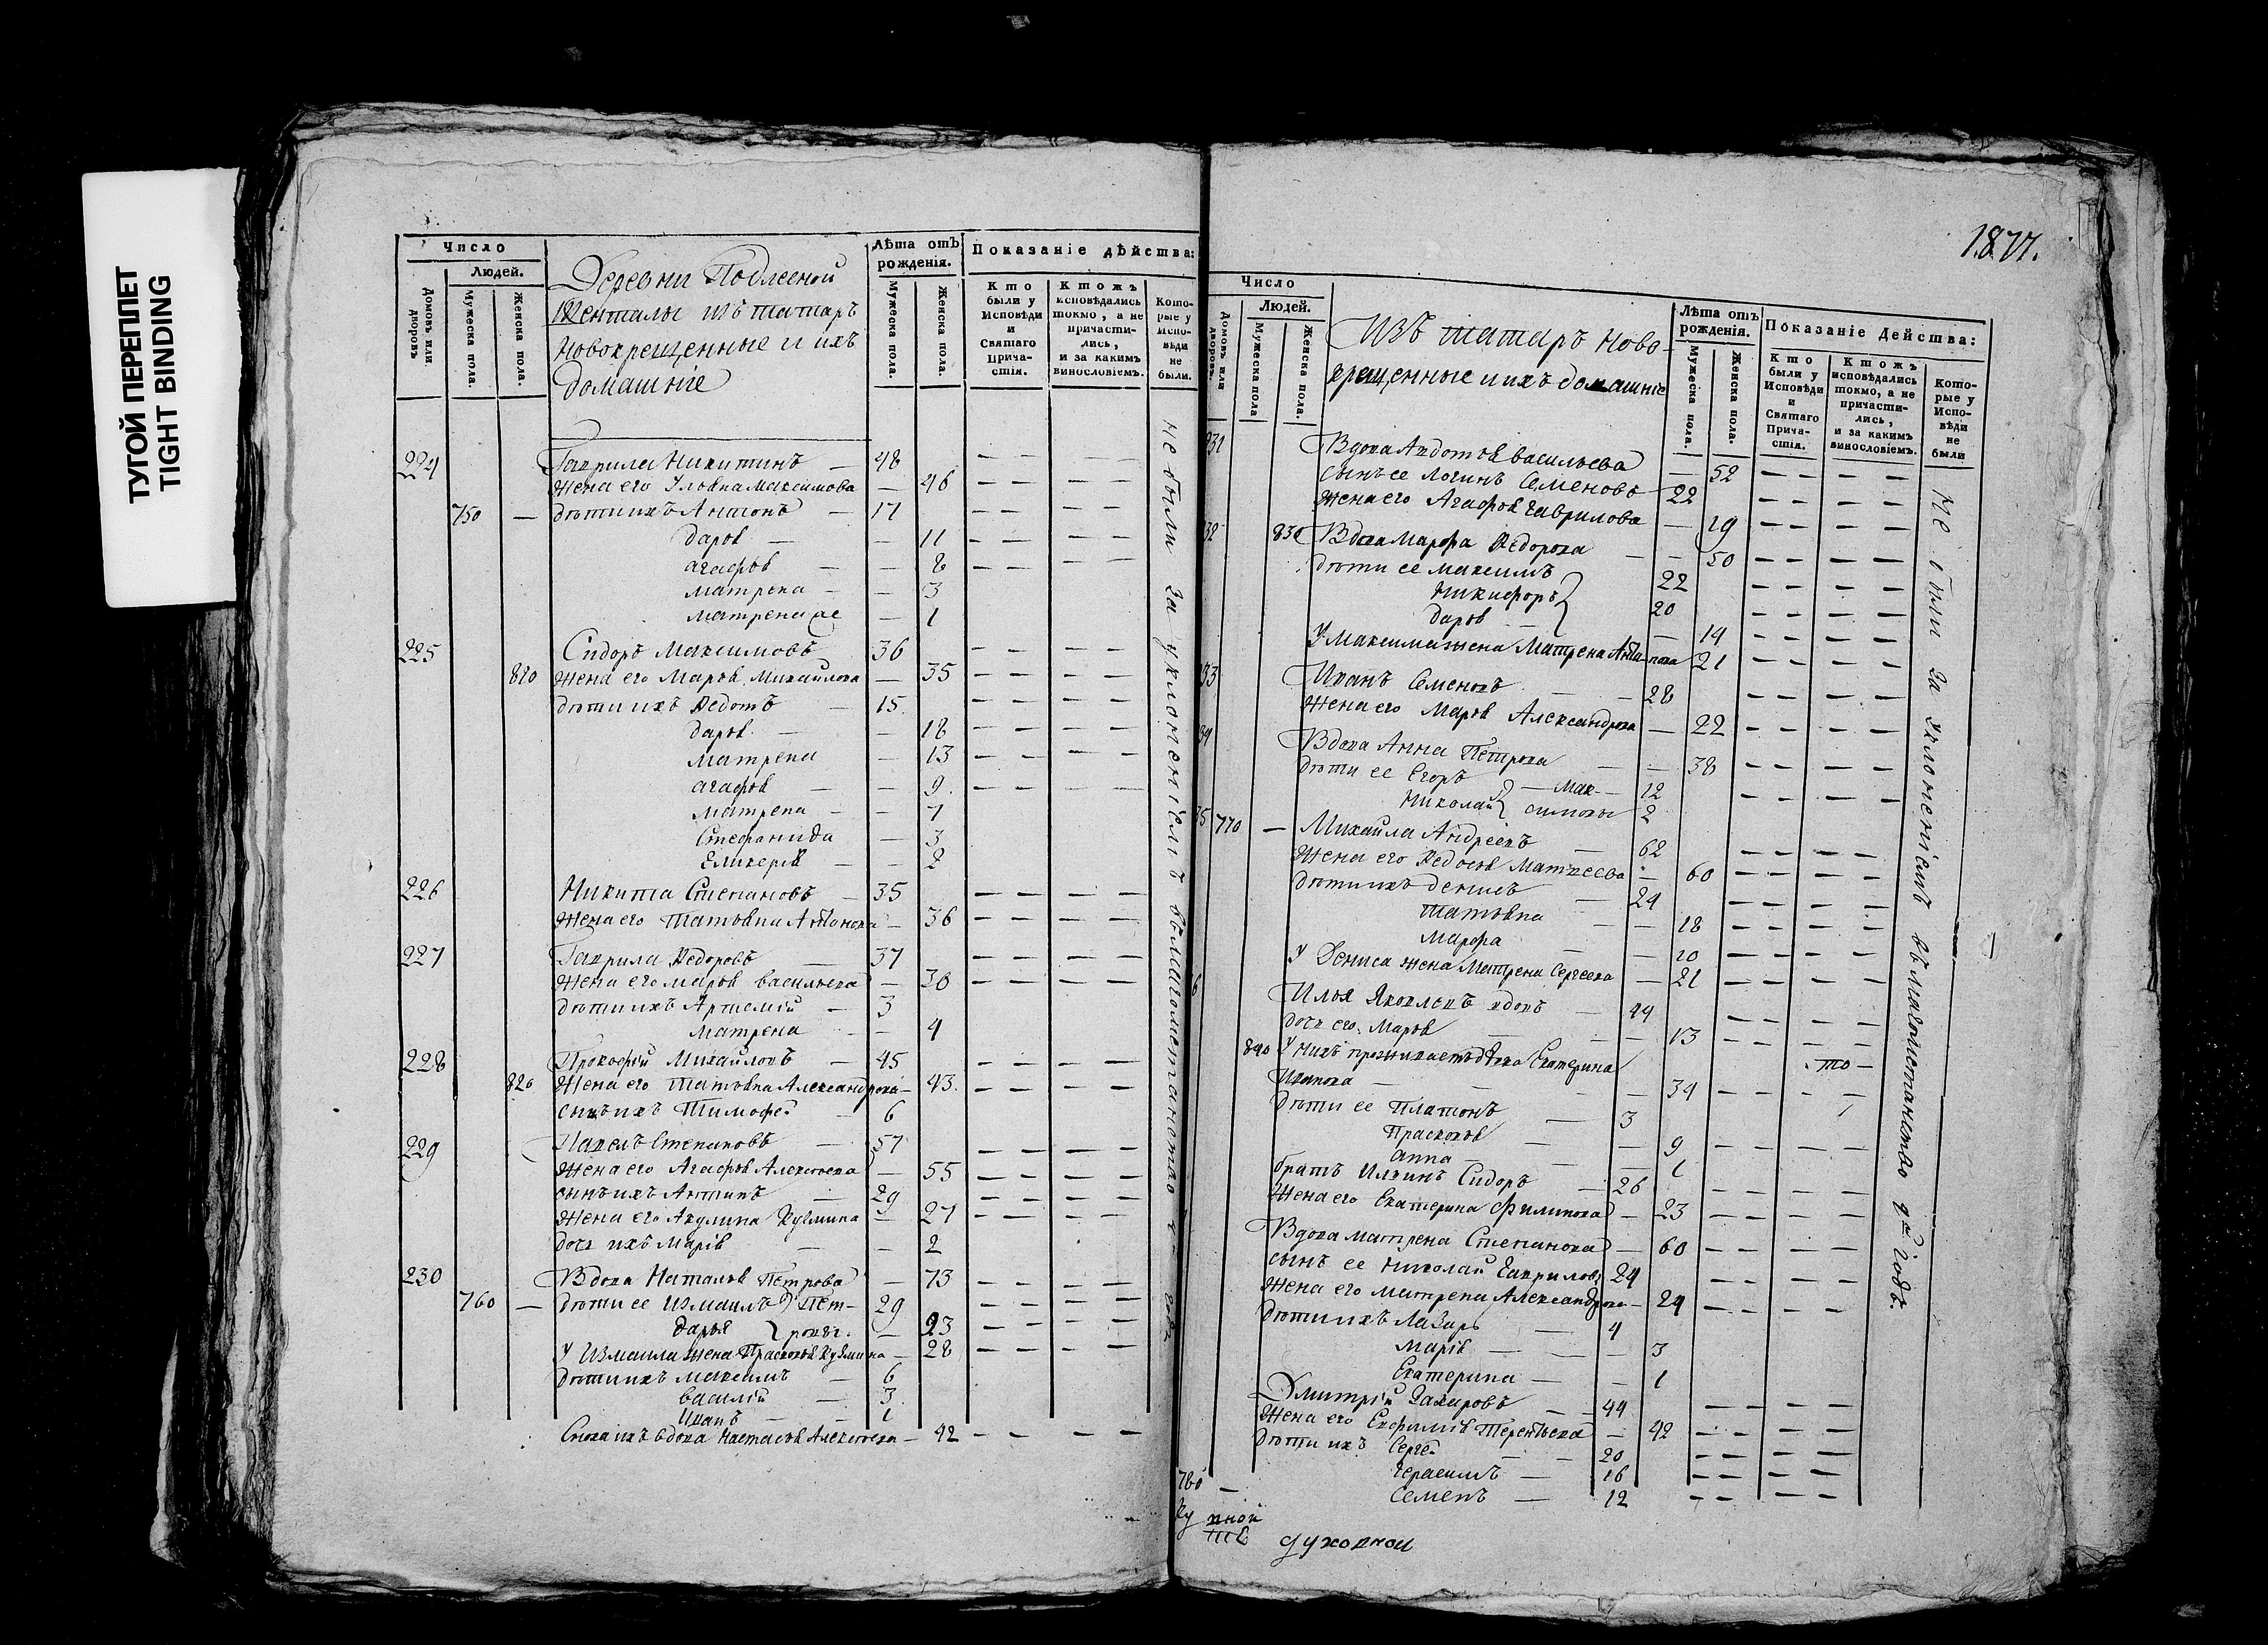 ТУГОЙ ПЕРЕПЛЕТ
TIGHT BINDING
Число
Людей.
Домовъ или дворовъ
Мужеска пола.
Женска пола.
Деревни Подлесной
Шенталы изъ татаръ
новокрещенные и ихъ
домашніе
Лѣта отъ рожденія.
Мужеска пола.
Женска пола.
Показаніе дѣйства:
Кто были у Исповѣди и Святаго Прича-стія.
Ктожъ исповѣдались токмо, а не причасти-лись, и за какимъ винословіемъ.
Кото-рые у Испо-вѣди не были.
224 Гаврила Никитинъ — 48
жена его Улвяна Максимова — 46
750 — дѣти ихъ Антонъ — 17
дарья — — 11
агафья — — 8
матрена — — 3
матрена же — 1
225 Сидоръ Максимовъ 36
820 жена его Марья Михайлова — 35
дѣти ихъ Ѳедотъ — 15
дарья — — 18
матрена — 13
агафья — — 9
матрена — — 7
Стефанида — 3
Гликерія — — 2
226 Никита Степановъ — 35
жена его татьяна Антонова — 36
227 Гаврила Ѳедоровъ — 37
жена его марья васильева — 30
дѣти ихъ Артемій — 3
матрена — — 4
228 Прокофій Михайловъ — 45
826 жена его татьяна Александрова — 43
сынъ ихъ Тимофей — 6
229 Павелъ Степановъ — 57
жена его Агафья Алексѣева — 55
сынъ ихъ Антипъ — 29
жена его Акулина Кузмина — 27
дочь ихъ Марія — — 2
230 Вдова Наталья Петрова — 73
760 — дѣти ее Измаилъ } Пет- 29
дарья } ровы. — 23
У Измаила жена Прасковья Кузмина — 28
дѣти ихъ максимъ — 6
василій — 3
Иванъ — — 1
Сноха ихъ вдова Настасья Алексѣева — 42
не были за уклоненіемъ въ магометанство
1877.
Число
Людей.
Домовъ или дворовъ.
Мужеска пола
Женска пола.
Изъ татаръ ново-
крещенные и ихъ домашніе
Лѣта отъ рожденія.
Мужеска пола.
Женска пола.
Показаніе Действа:
Кто были у Исповѣди и Святаго Прича-стія.
Ктожъ исповѣдались токмо, а не причасти-лись, и за какимъ винословіемъ.
Кото-рые у Испо-вѣди не были
231 Вдова Авдотья васильева — 52
сынъ ее Логинъ Семеновъ 22
жена его Агафья Гаврилова — 19
32 830 Вдова Марфа Ѳедорова — — 50
дѣти ее максимъ 22
Никифоръ } 20
дарья — 14
У Максима жена Матрена Антипова 21
33 Иванъ Семеновъ — — 28
жена его Марья Александрова — 22
34 Вдова Анна Петрова — — 38
дѣти ее Егоръ } — Мак- — 12
Николай } симовы 2
35 770 — Михайла Андреевъ — 62
жена его Ѳедосья Матвеева — 60
дѣти ихъ денисъ — 24
татьяна — — 18
марфа — — 10
У Дениса жена Матрена Сергеева — 21
6 Илья Яковлевъ вдовъ — 44
дочь его Марья — — 13
840 У нихъ проживаетъ вдова Екатерина
Иванова — — — 34
дѣти ее Платонъ — 3
Прасковья — — 9
анна — — 1
братъ Ильинъ Сидоръ — 26
жена его Екатерина Филипова — 23
Вдова матрена Степанова — 60
сынъ ее Николай Гавриловъ 24
жена его матрена Александрова — 24
дѣти ихъ Лазарь — 4
Марія — — 3
Екатерина — — 1
Дмитрій Захаровъ — 44
жена его Евфимія Терентьева — 42
дѣти ихъ Сергей — — 20
герасимъ — 16
780 — семенъ — 12
не были за уклоненіемъ въ магометанство
духовной